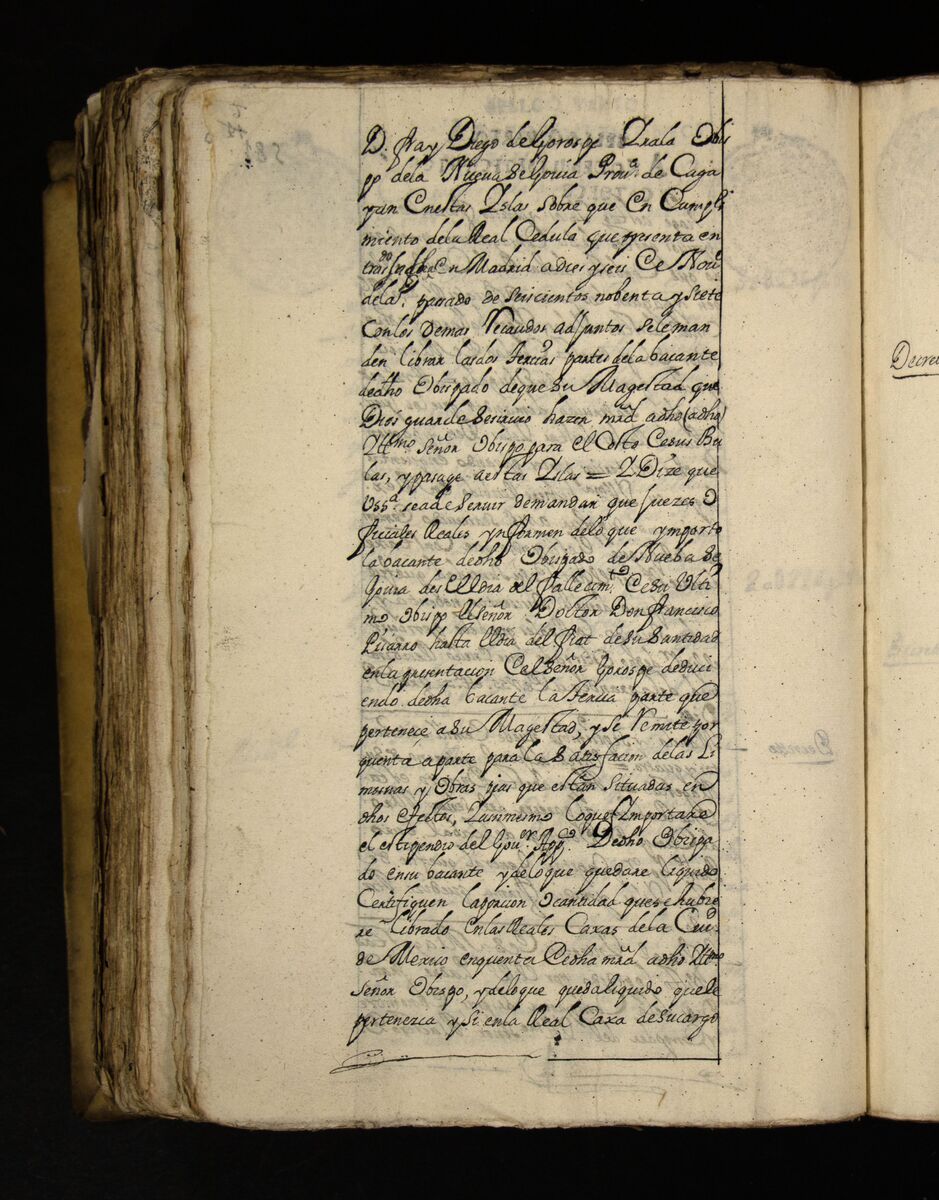 D. fray Diego de Gorospe Yrala Obis
po dela Nueva Segovia Prou.ª de Caga
yan En estas Yslas sobre que En Cumpli
miento dela Real Cedula que presenta en
En Madrid a dies y seis De Nou.e
del a.º pasado de seiscientos nobenta y siete
Con los Demas Recaudos adjuntos se le man
den librar las dos tercias partes dela bacante
de dho Obispado de que su Magestad que
Dios guarde se siruio hazer mrd adho (adho)
Yll.mo señor Obispo para el Costo De sus Bu
las, y pasage a estas Yslas = Y Dize que
Vss.ª sea de seruir demandar que Juezes O
ficiales Reales ynformen delo que ymporto
la bacante de dho Obispado de Nueba Se
gouia desde El dia del fallecim.to De su Ulti
mo Obispo El señor Doctor Don francisco
Pisarro hasta El dia del fiat de su Santidad
en la presentacion Del señor Gorospe deduci
endo de dha bacante la tercia parte que
pertenece a Su Magestad, y se Remite por
quenta aparte para la Satisfacion delas Li
mosnas y Obras pias que estan Situadas en
dhos efectos, Y asimismo lo que Ymportare
el estipendio del Gou.or App.co De dho Obispa
do en su bacante y delo que quedare liquido
Certifiquen la porcion o cantidad que se hubie
re librado En las Reales Caxas dela Ciu.d
de Mexico en quenta De dha mrd adho Yll.mo
señor Obispo, y delo que queda liquido que le
pertenezca y Si en la Real Caxa de su cargo
Decre